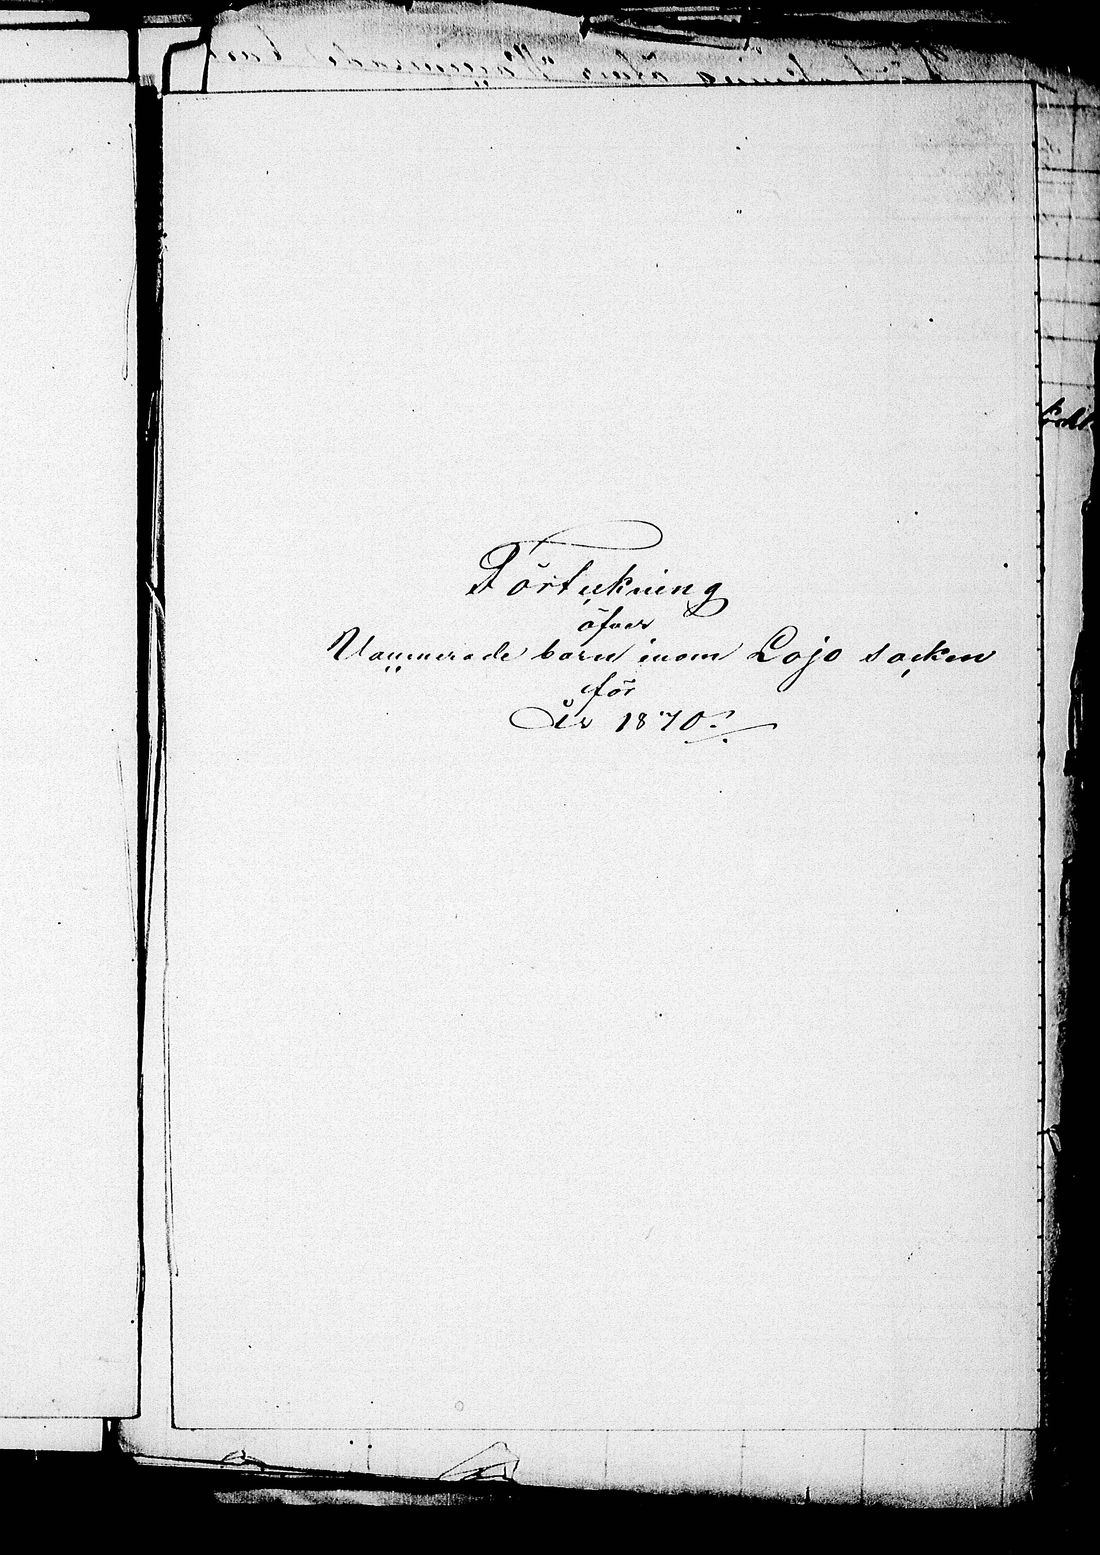 Förteckning
öfver
Vaccinerade barn inom Lojo socken
för
År 1870.